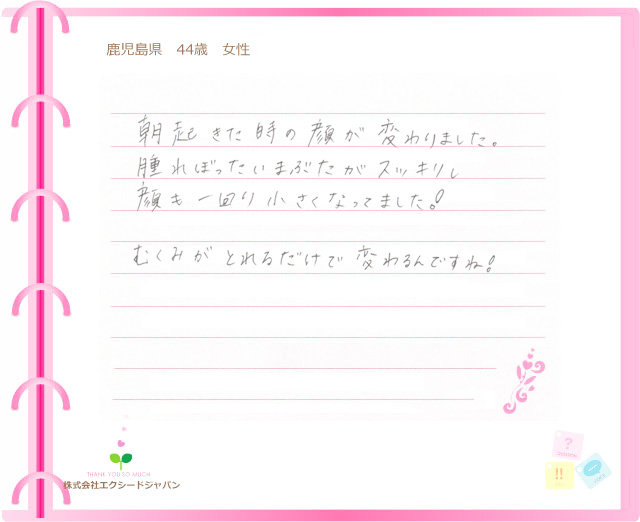 鹿児島県　44歳　女性
朝起きた時の顔が変わりました。
腫れぼったいまぶたがスッキリし
顔も一回り小さくなってました!
むくみがとれるだけで変わるんですね!
THANK YOU SO MUCH
株式会社エクシードジャパン
?
!!